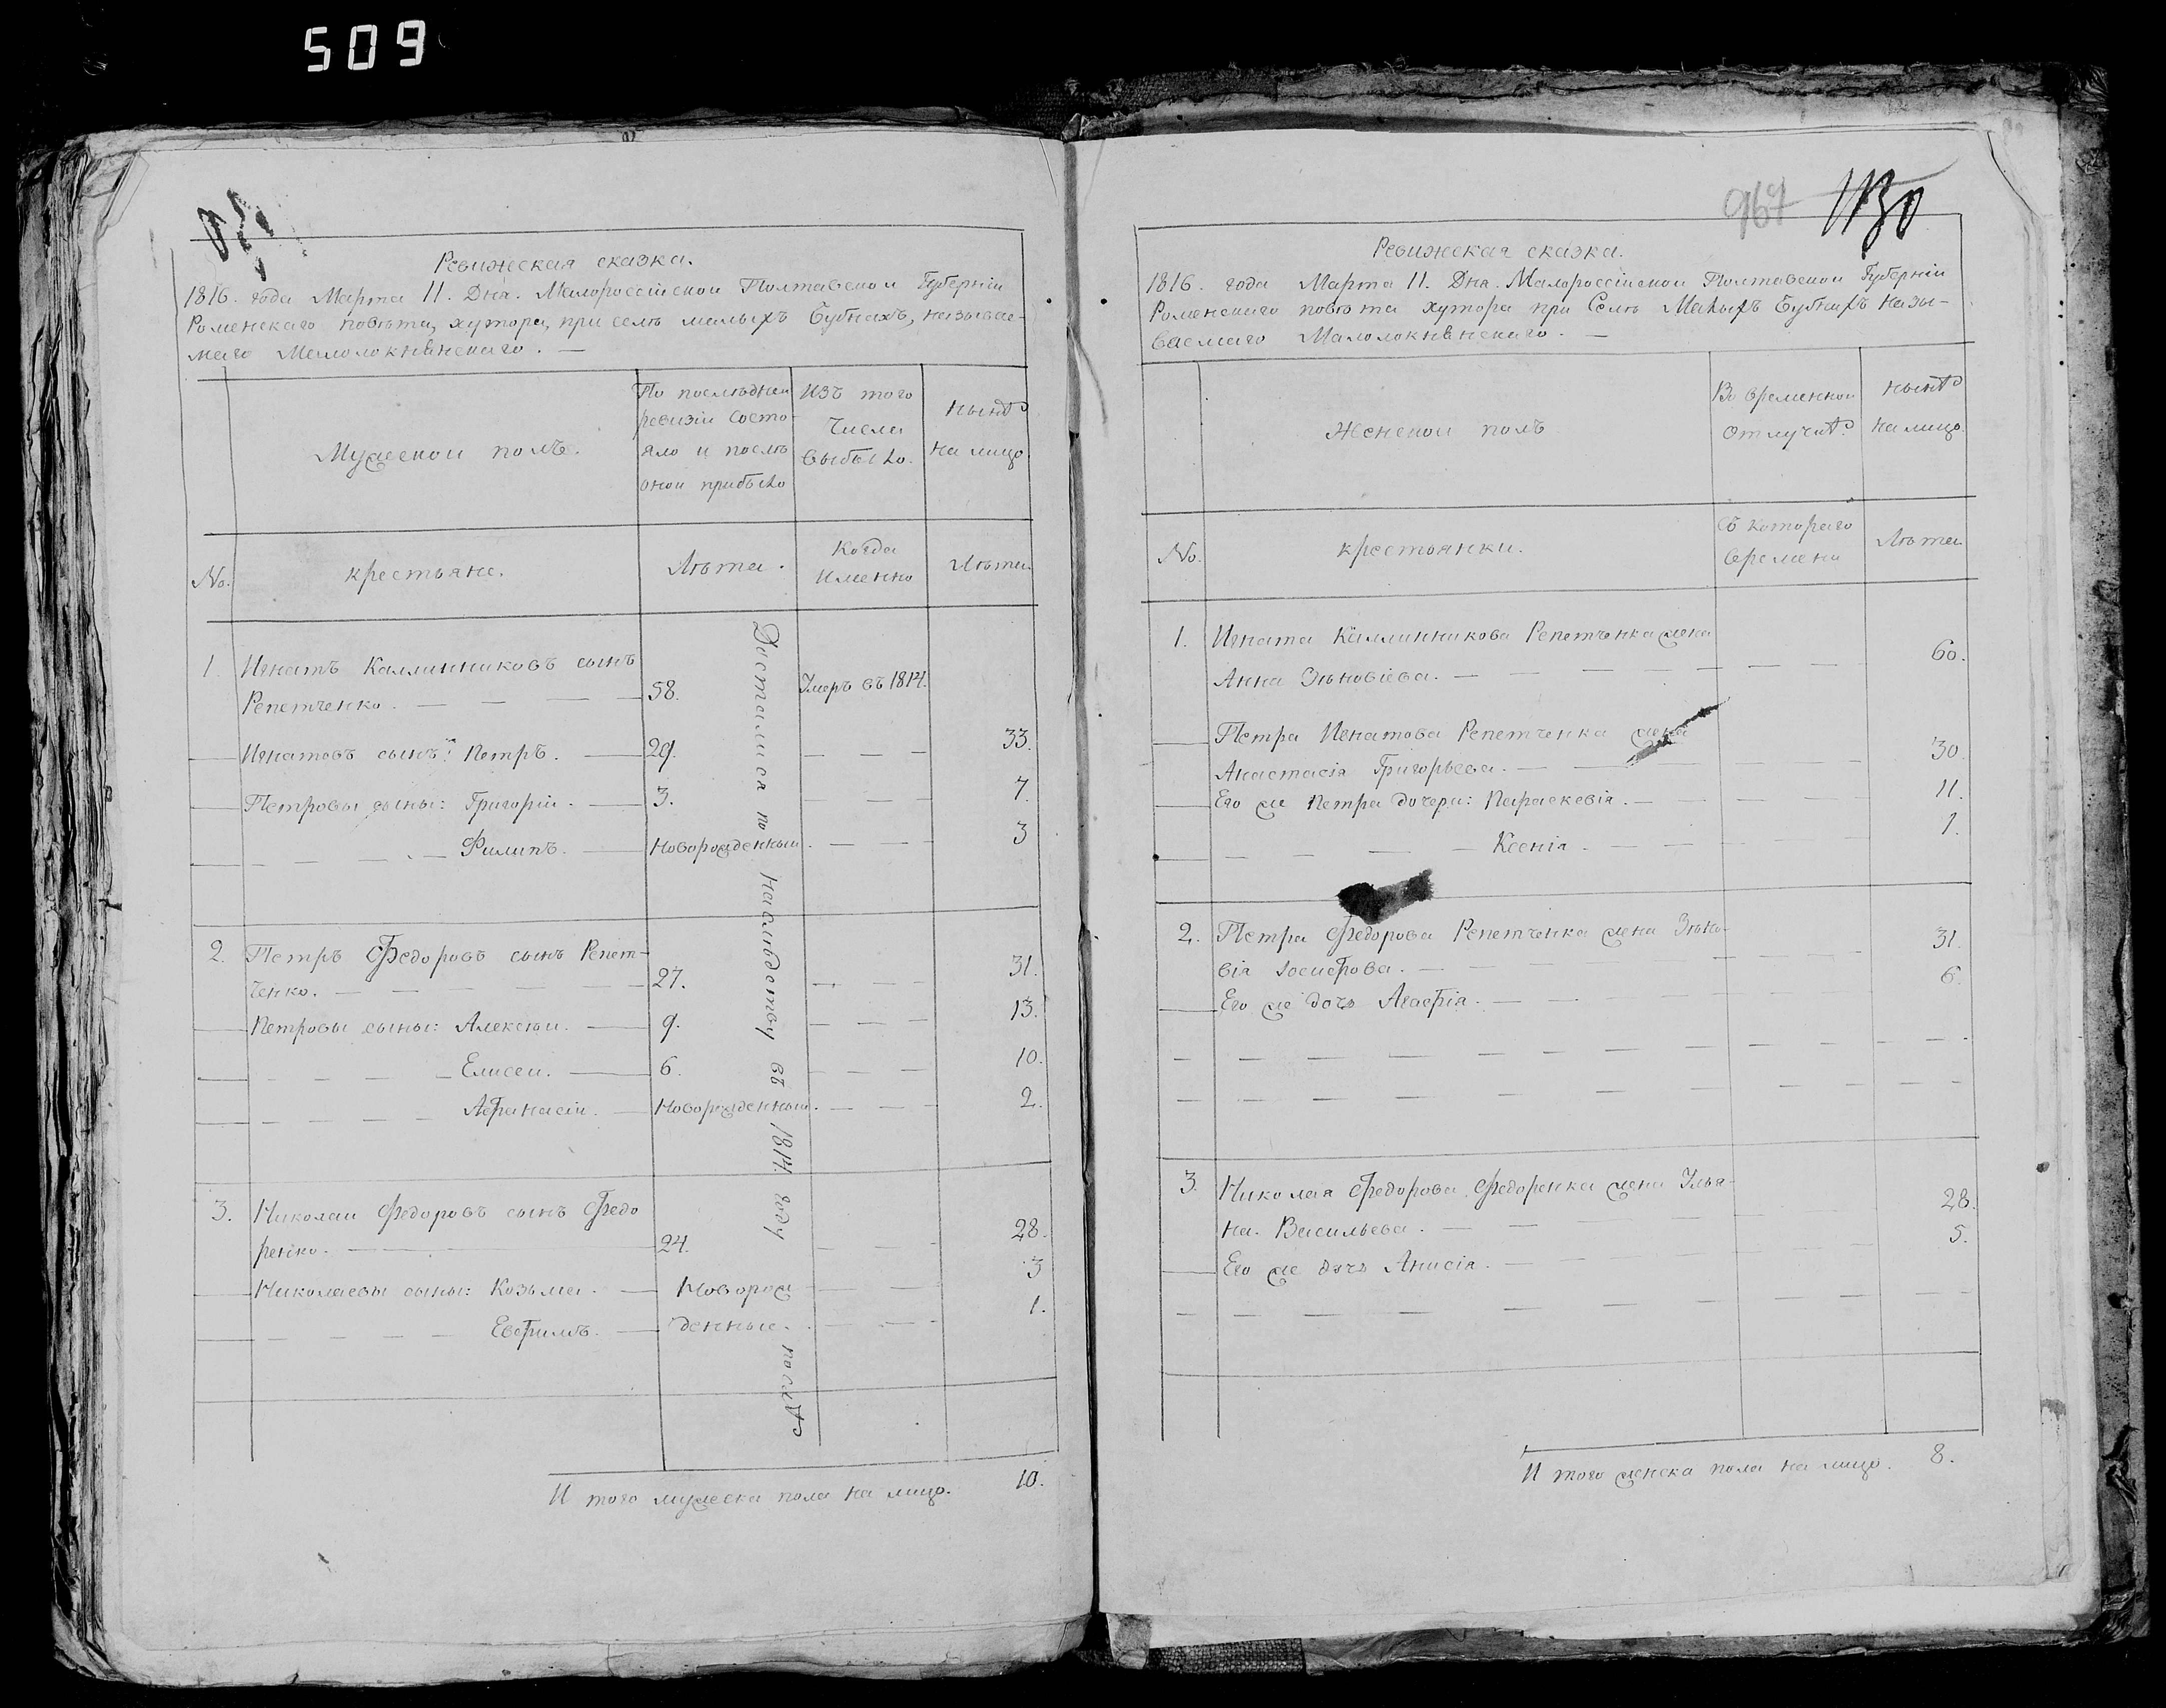 509
Ревижская сказка.
1816. года Марта 11. Дня. Малороссійской Полтавской Губерніи
Роменскаго повѣта, хутора, при селѣ малыхъ Бубнахъ, называе-
маго
Мужеской полъ.
По послѣдней
ревизіи состо-
яло и послѣ
оной прибыло
Изъ того
числа
выбыло.
нынѣ
на лицо
No.
крестьяне.
Лѣта.
Когда
Именно
Лѣта.
1. Игнатъ Каллинниковъ сынъ
Репетченко. — — — 58. Умеръ въ 1814.
Игнатовъ сынъ: Петръ. — 29. — — — 33.
Петровы сыны: Григорій. — 3. — — 7.
— — — — Филипъ. — Новорожденный. — — — 3
2. Петръ Федоровъ сынъ Репет-
ченко. — — — — — — 27. — — — 31.
Петровы сыны: Алексѣй. — 9. — — — 13.
— — — — Елисей. — 6. — — — 10.
— — — — Афанасій. — Новорожденный. — — — 2.
3. Николай Федоровъ сынъ Федо
ренко. — 24. — — — 28.
Николаевы сыны: Козьма. — Новорож — — 3
— — — — Евфимъ. — денные. — — — 1.
Достались по наслѣдству въ 1814. году послѣ
И того мужеска пола на лицо. 10.
967 1130
Ревижская сказка.
1816. года Марта 11. Дня. Малороссійской Полтавской Губерніи
Роменскаго повѣта хутора при Селѣ Малыхъ Бубнахъ назы-
ваемаго
Женской полъ
Во временной
отлучкѣ.
нынѣ
на лицо.
No.
крестьянки.
съ котораго
времени
Лѣта
1. Игната Каллинникова Репетченка жена
Анна Зѣновіева. — — — — — — 60.
Петра Игнатова Репетченка жена
Анастасія Григорьева. — — — — — 30.
Его же Петра дочери: Параскевія. — — — 11.
— — — — Ксенія. — — — 1.
2. Петра Федорова Репетченка жена Зѣно-
вія Іосифова. — — — — — 31.
Его же дочь Агафія. — — — — — 6.
3. Николая Федорова Федоренка жена Улья-
на. Васильева. — — — — — 28.
Его же дочь Анисія. — — — — 5.
И того женска пола на лицо. 8.